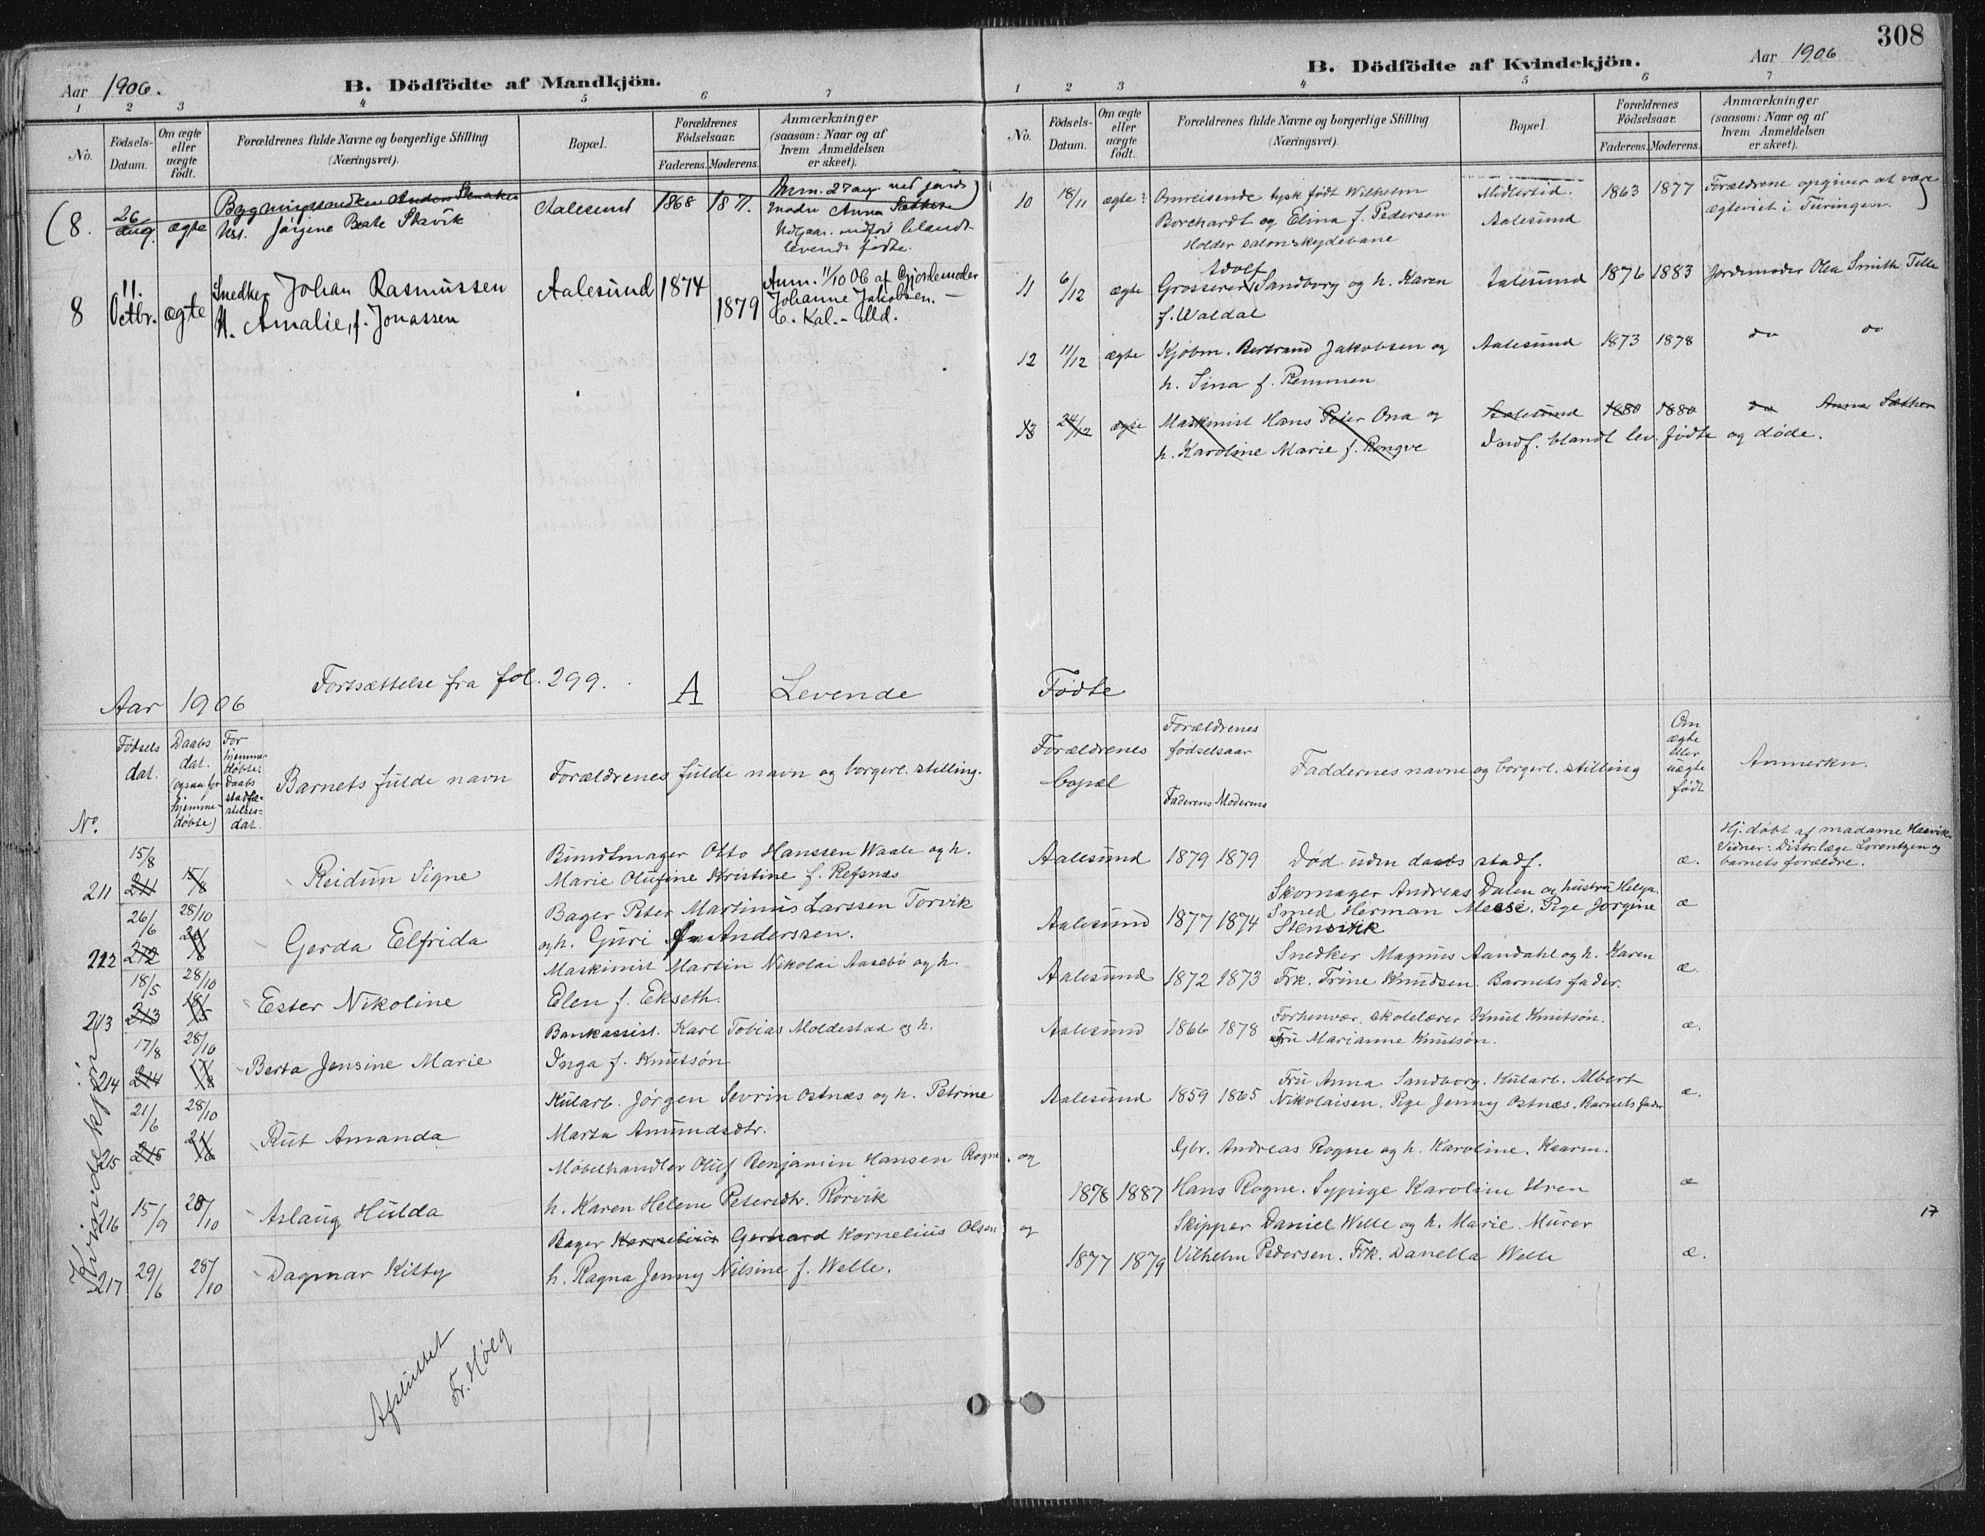 308
Aar 1906.
B. Dödfödte af Mandkjön.
1 2 3 4 5 6 7
No.
Födsels-Datum.
Om ægte eller uægte födt.
Forældrenes fulde Navne og borgerlige Stilling (Næringsvei).
Bopæl.
Forældrenes Födselsaar.
Faderens. Moderens.
Anmærkninger (saasom: Naar og af hvem Anmeldelsen er skeet).
(8. 26 aug. ægte
Hst. Jörgine Beate Slavik
Aalesund 1868 1871.
Anm. 27 aug. ved jord-
madr Anna Sæther)
Udgaar. indført blandt
levende fødte.
8 11. Octbr. ægte
Snedker Johan Rasmussen
H. Amalie, f. Jonassen
Aalesund 1874 1879
Anm. 11/10 06 af Gjordemoder
Johanne Jakobsen. —
Aar 1906
B. Dödfödte af Kvindekjön.
1 2 3 4 5 6 7
No.
Födsels-Datum.
Om ægte eller uægte födt.
Forældrenes fulde Navne og borgerlige Stilling (Næringsvei).
Bopæl.
Forældrenes Födselsaar.
Faderens. Moderens.
Anmærkninger (saasom: Naar og af hvem Anmeldelsen er skeet).
10 18/11 ægte? Omreisende tysk født Wilhelm
Borchardt og Elina f. Pedersen
Holder salonskydebane
Midlertid. Aalesund
1863 1877
Forældrene opgiver at være
ægteviet i Türingen.)
11 6/12 ægte Grosserer Adolf Sandborg og h. Karen
f. Waldal
Aalesund 1876 1883 Jordemoder Olea Smith Tille
12 11/12 ægte Kjøbm. Bertrand Jakobsen og
h. Sina f. Remmen
Aalesund 1873 1878 do do
13 24/12 ægte Maskinist Hans Peter Ona og
h. Karoline Marie f. Rongve
Aalesund 1880 1880 do Anna Sæther
Indf. blandt lev. fødte og døde.
Aar 1906
Fortsættelse fra fol. 299.
A Levende Fødte
No.
Fødsels dat.
Daabs dat. (ogsaa for hjemmedøbte)
For hjemmedøbte: Daabs stadfæstelsesdat.
Barnets fulde navn
Forældrenes fulde navn og borgerl. stilling.
Forældrenes bopæl
Forældrenes fødselsaar
Faderens Moderens
Faddernes navne og borgerl. stilling
Om ægte eller uægte født
Anmerkn.
Kvindekjön
211 15/8 Reidun Signe
Bundtmager Otto Hanssen Waale og h.
Marie Olufine Kristine f. Refsnæs
Aalesund 1879 1879 Død uden daabs stadf. æ.
Hj. døbt af madame Haavik.
Vidner: Distr.læge Lorentzen og
barnets forældre.
212 26/6 28/10 Gerda Elfrida
Bager Peter Martinus Larssen Torvik
og h. Guri Anderssen.
Aalesund 1877 1874
Skomager Andreas Dalen og hustru Helga.
Smed Herman Meese. Pige Jørgine
Stensvik
æ
213 18/5 28/10 Ester Nikoline
Maskinist Martin Nikolai Aasebö og h.
Elen f. Ekseth.
Aalesund 1872 1873
Snedker Magnus Aandahl og h. Karen
Frk. Trine Knudsen. Barnets fader.
æ.
214 17/8 28/10 Berta Jensine Marie
Bankassist. Karl Tobias Moldestad og h.
Inga f. Knutsön
Aalesund 1866 1878
Forhenvær. skolelærer Knut Knutsön.
Fru Marianne Knutsön.
æ.
215 21/6 28/10 Rut Amanda
Kularb. Jörgen Sevrin Ostnæs og h. Petrine
Marta Amundsdtr.
Aalesund 1859 1865
Fru Anna Sandborg. Kularb. Albert
Nikolaisen. Pige Jenny Ostnæs. Barnets fader
æ.
216 15/9 28/10 Aslaug Hulda
Møbelhandler Oluf Benjamin Hansen Rogne. og
h. Karen Helene Petersdtr. Rörvik
1878 1887
Gbr. Andreas Rogne og h. Karoline. Kaarm.
Hans Rogne. Sypige Karoline Uren
æ
217 29/6 28/10 Dagmar Kitty
Bager Kornelius Gerhard Kornelius Olsen og
h. Ragna Jenny Nilsine f. Welle.
1877 1879
Skipper Daniel Welle og h. Marie. Murer
Vilhelm Pedersen. Frk. Danella Welle
æ.
17
Afsluttet
Fr. Høeg